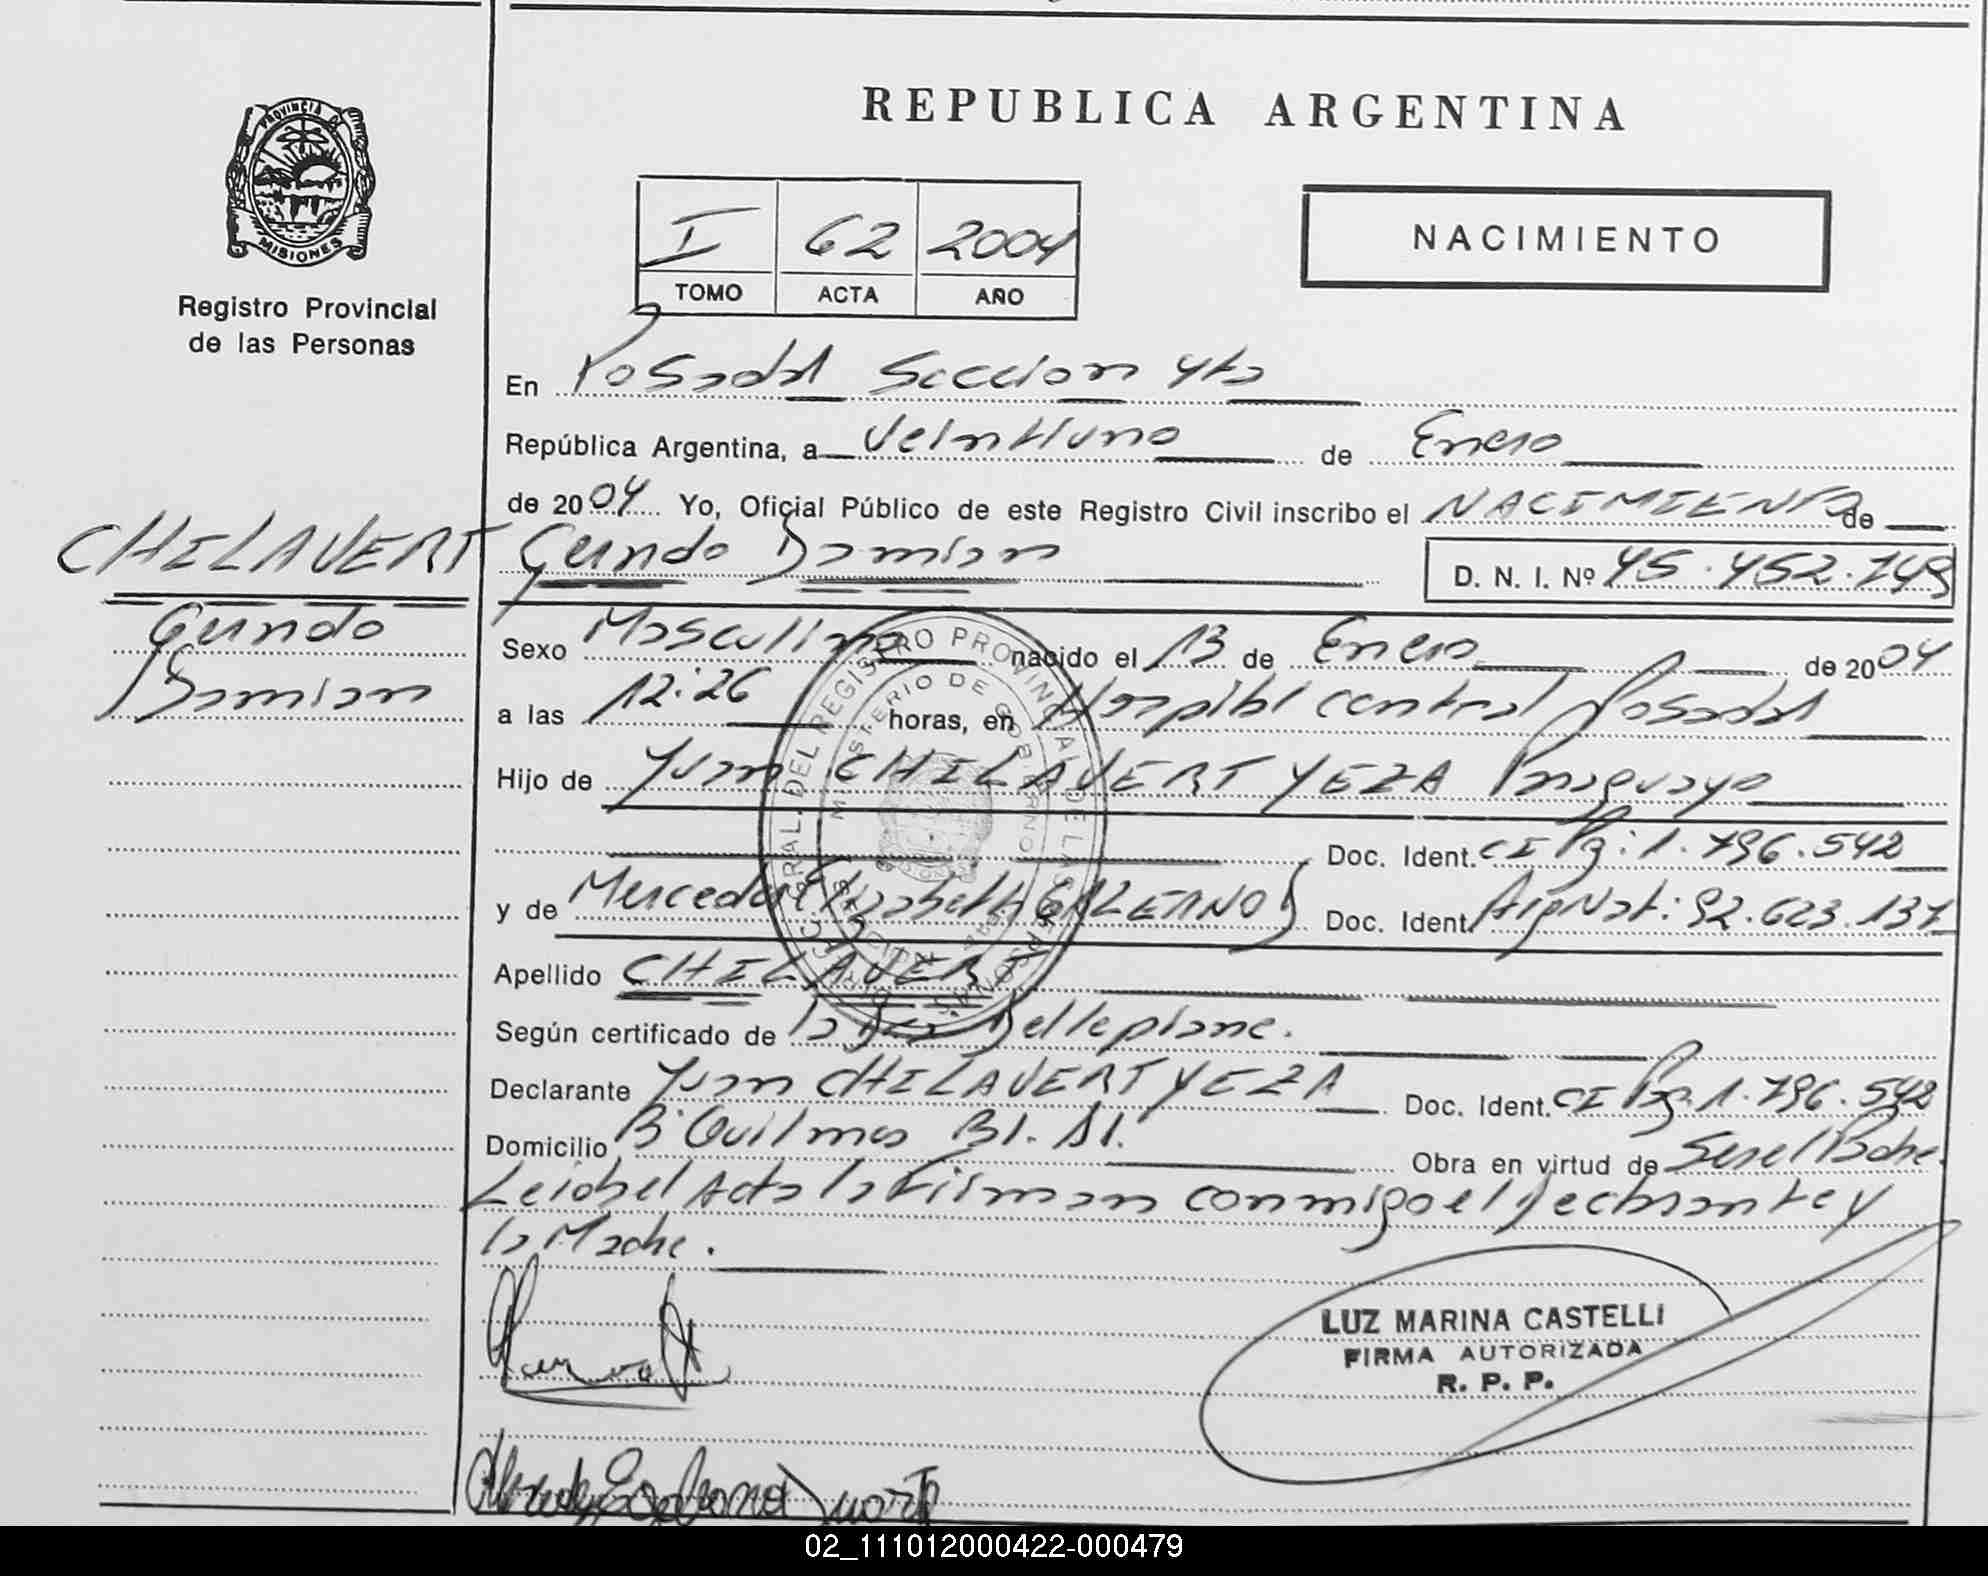 REPUBLICA ARGENTINA
PROVINCIA D
MISIONES
Registro Provincial
de las Personas
I 62 2004
TOMO ACTA AÑO
NACIMIENTO
En Posadas Seccion 4ta
República Argentina, a veintiuno de Enero
de 2004 Yo, Oficial Público de este Registro Civil inscribo el NACIMIENTO de
CHILAVERT
Damian
D. N. I. Nº 45.452.749
Damian
Sexo Masculino nacido el 13 de Enero de 2004
a las 12:26 horas, en Hospital central Posadas
Hijo de Juan CHILAVERT YEZA Paraguayo
Doc. Ident. CI Pg: 1.796.542
y de Mercedes Elizabeth GALEANO Doc. Ident. ArgNat: 92.623.137
Apellido CHILAVERT
Según certificado de la Dra Dellepiane.
Declarante Juan CHILAVERT YEZA Doc. Ident. CI Pg. 1.796.542
Domicilio Bº Quilmes Obra en virtud de Ser el Padre.
Leida el Acta la Firman conmigo el Declarante y
la Madre.
LUZ MARINA CASTELLI
FIRMA AUTORIZADA
R. P. P.
02_111012000422-000479